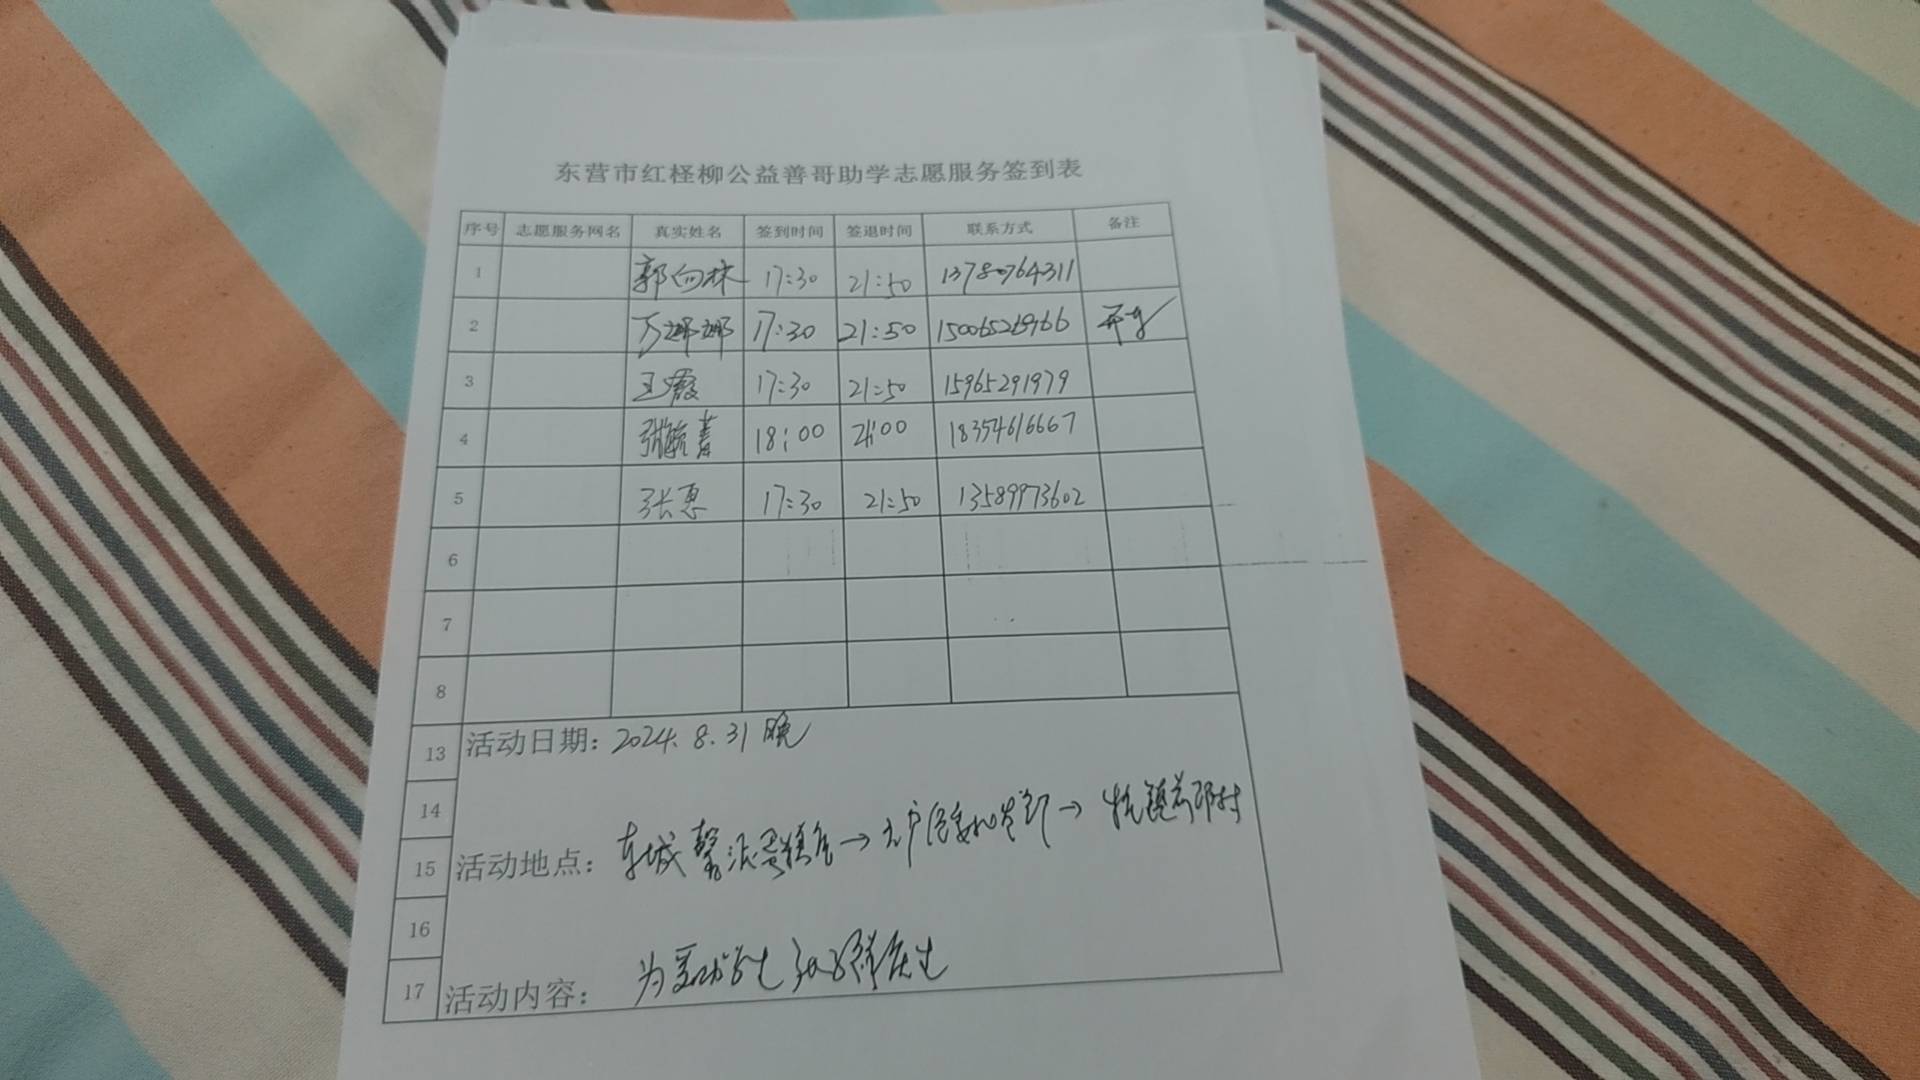 东营市红柽柳公益善哥助学志愿服务签到表
序号 志愿服务网名 真实姓名 签到时间 签退时间 联系方式 备注
1 郭向林 17:30 21:50 13780764311
2 万娜娜 17:30 21:50 15065269766 开车
3 王霞 17:30 21:50 15965291979
4 张毓菁 18:00 21:00 18354616667
5 张惠 17:30 21:50 13589973602
6
7
8
13 活动日期: 2024.8.31 晚
14
15 活动地点: 东城馨派蛋糕店→
16
17 活动内容: 为受助学生